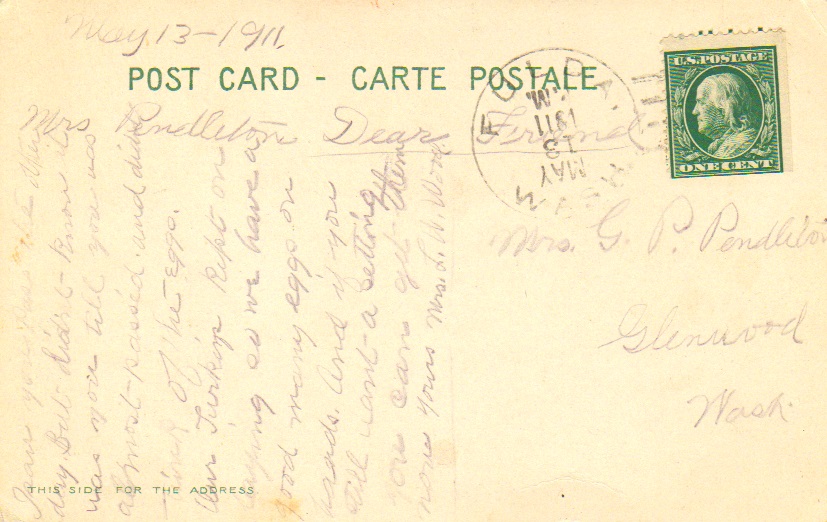 May 13-1911.
POST CARD - CARTE POSTALE
Mrs Pendleton Dear Friend
I saw you pass the other
day But didn't know it
was you till you was
almost passed and didn't
think of the eggs.
Our Turkeys kept on
laying so we have a
good many eggs on
hands. And if you
still want a setting
you can get them
now yours Mrs. L. A. Wood.
FULDA, WASH.
MAY
13
1911
M.
U.S. POSTAGE
ONE CENT
Mrs. G. P. Pendleton
Glenwood
Wash.
THIS SIDE FOR THE ADDRESS